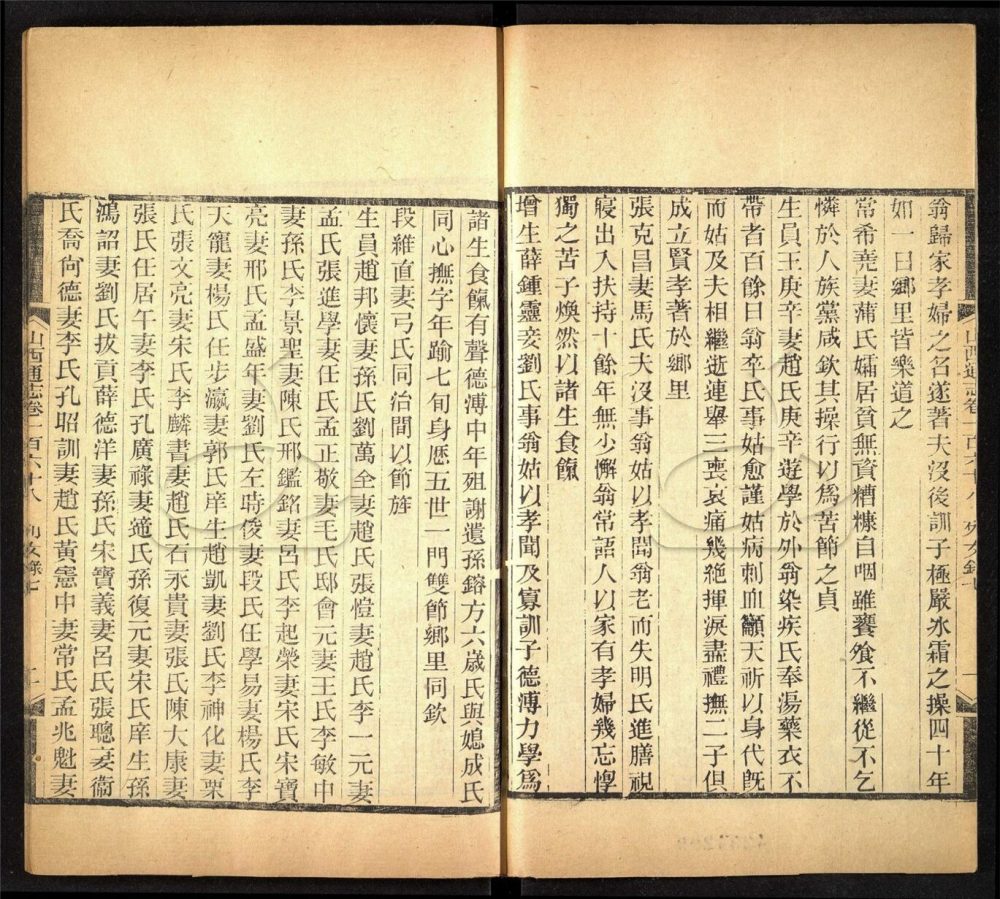 翁歸家孝婦之名遂著夫沒後訓子極嚴冰霜之操四十年
如一日鄉里皆樂道之
常希堯妻蒲氏孀居貧無資糟糠自咽雖饔飧不繼從不乞
憐於人族黨咸欽其操行以爲苦節之貞
生員王庚辛妻趙氏庚辛遊學於外翁染疾氏奉湯藥衣不
帶者百餘日翁卒氏事姑愈謹姑病刺血籲天祈以身代旣
而姑及夫相繼逝連舉三喪哀痛幾絕揮淚盡禮撫二子俱
成立賢孝著於鄉里
張克昌妻馬氏夫沒事翁姑以孝聞翁老而失明氏進膳視
寢出入扶持十餘年無少懈翁常語人以家有孝婦幾忘惸
獨之苦子煥然以諸生食餼
增生薛鍾靈妾劉氏事翁姑以孝聞及寡訓子德溥力學爲
諸生食餼有聲德溥中年殂謝遺孫鎔方六歲氏與媳成氏
同心撫字年踰七旬身歷五世一門雙節鄉里同欽
段維直妻弓氏同治間以節旌
生員趙邦懷妻孫氏劉萬全妻趙氏張愷妻趙氏李一元妻
孟氏張進學妻任氏孟正敬妻毛氏邸會元妻王氏李敏中
妻孫氏李景聖妻陳氏邢鑑銘妻呂氏李起榮妻宋氏宋寶
亮妻邢氏孟盛年妻劉氏左時俊妻段氏任學易妻楊氏李
天寵妻楊氏任步瀛妻郭氏庠生趙凱妻劉氏李神化妻栗
氏張文亮妻宋氏李麟書妻趙氏石永貴妻張氏陳大康妻
張氏任居午妻李氏孔廣祿妻遆氏孫復元妻宋氏庠生孫
鴻詔妻劉氏拔貢薛德洋妻孫氏宋寶義妻呂氏張聰妻衞
氏喬尙德妻李氏孔昭訓妻趙氏黃憲中妻常氏孟兆魁妻
山西通志卷一百六十八 列女錄七